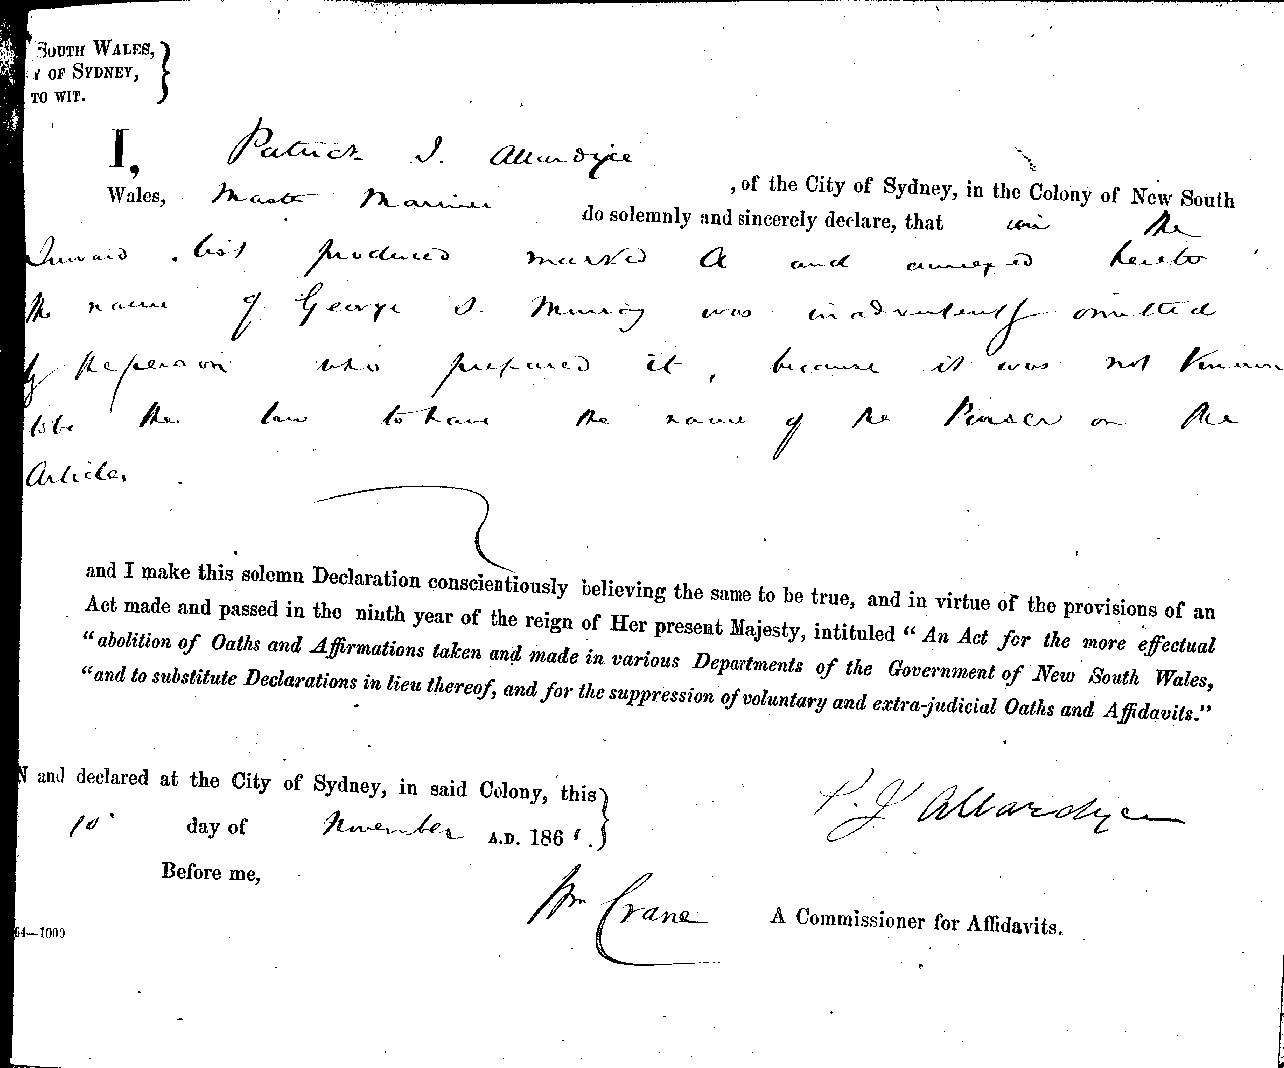 SOUTH WALES,
Y OF SYDNEY,
TO WIT.
I, Patrick J. Allardyce
, of the City of Sydney, in the Colony of New South
Wales, Master Mariner do solemnly and sincerely declare, that in the
Inward list produced marked A and annexed hereto
the name of George S. Murray was inadvertently omitted
by the person who prepared it, because it was not known
to be the law to have the name of the Purser on the
Articles
and I make this solemn Declaration conscientiously believing the same to be true, and in virtue of the provisions of an
Act made and passed in the ninth year of the reign of Her present Majesty, intituled “An Act for the more effectual
“abolition of Oaths and Affirmations taken and made in various Departments of the Government of New South Wales,
“and to substitute Declarations in lieu thereof, and for the suppression of voluntary and extra-judicial Oaths and Affidavits.”
N and declared at the City of Sydney, in said Colony, this
day of November A.D. 186
P. J. Allardyce
Before me,
Wm Crane A Commissioner for Affidavits.
64—1000